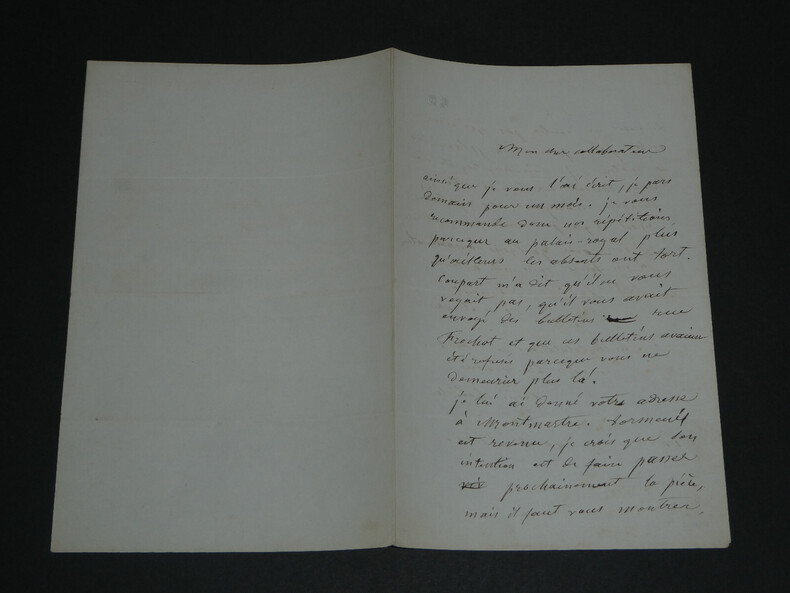 Mon cher collaborateur
ainsi que je vous l'ai écrit, je pars
demain pour un mois. je vous
recommande donc nos répétitions
parceque au palais-royal plus
qu'ailleurs les absents ont tort.
Coupart m'a dit qu'il ne vous
voyait pas, qu'il vous avait
envoyé des bulletins rue
Frochot et que ces bulletins avaient
été refusés parceque vous ne
demeuriez plus là.
je lui ai donné votre adresse
à Montmartre. Dormeuil
est revenu, je crois que son
intention est de faire passer
prochainement la pièce,
mais il faut vous montrer,